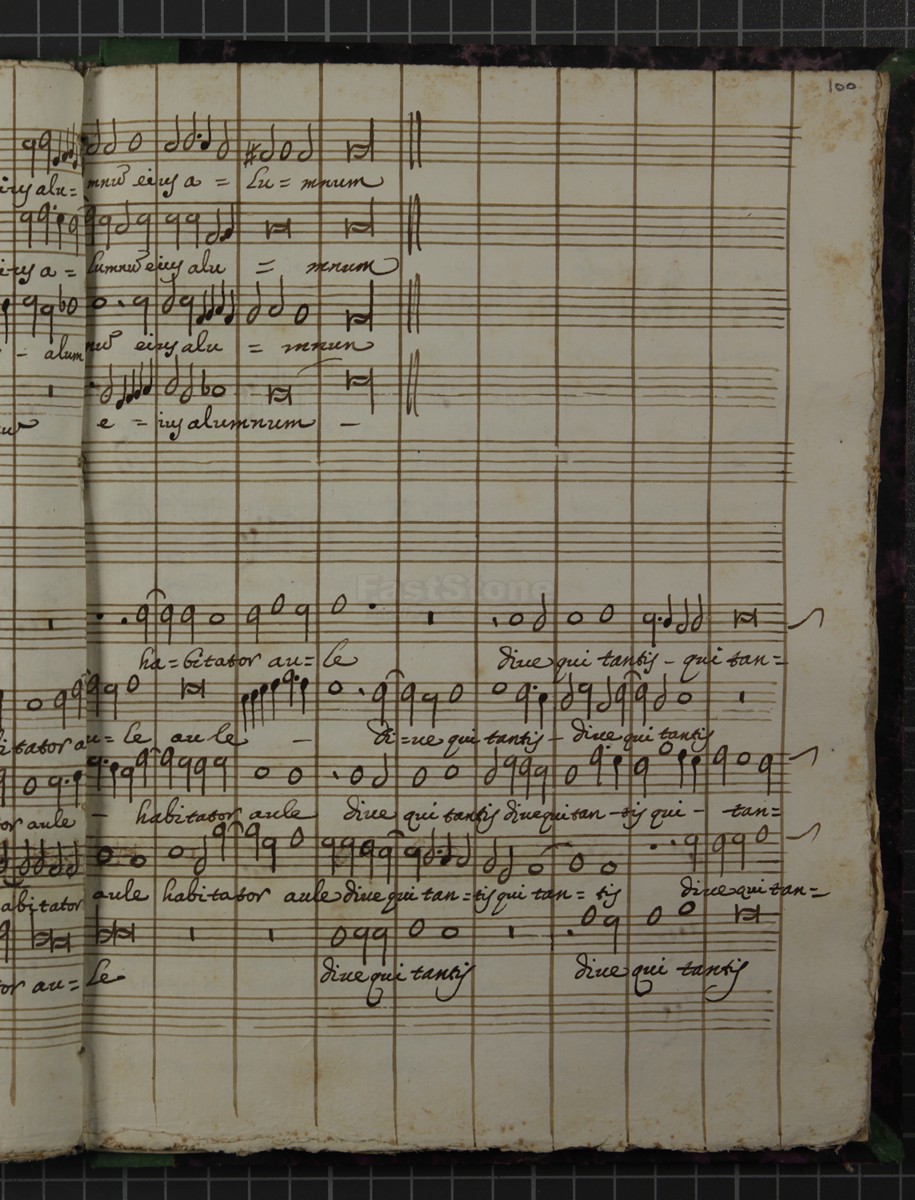 100
alu= mnũ eius a = lu = mnum
a = lumnũ eius alu = mnum
- alum nũ eius alu = mnum
e = ius alumnum -
FastStone
ha = bitator au = le diue qui tantis - qui tan =
bitator au = le au le - di = ue qui tantis - diue qui tantis
or aule - habitator aule diue qui tantis diue qui tan - tis qui - tan =
abitator aule habitator aule diue qui tan = tis qui tan = tis diue qui tan =
or au = le diue qui tantis diue qui tantis